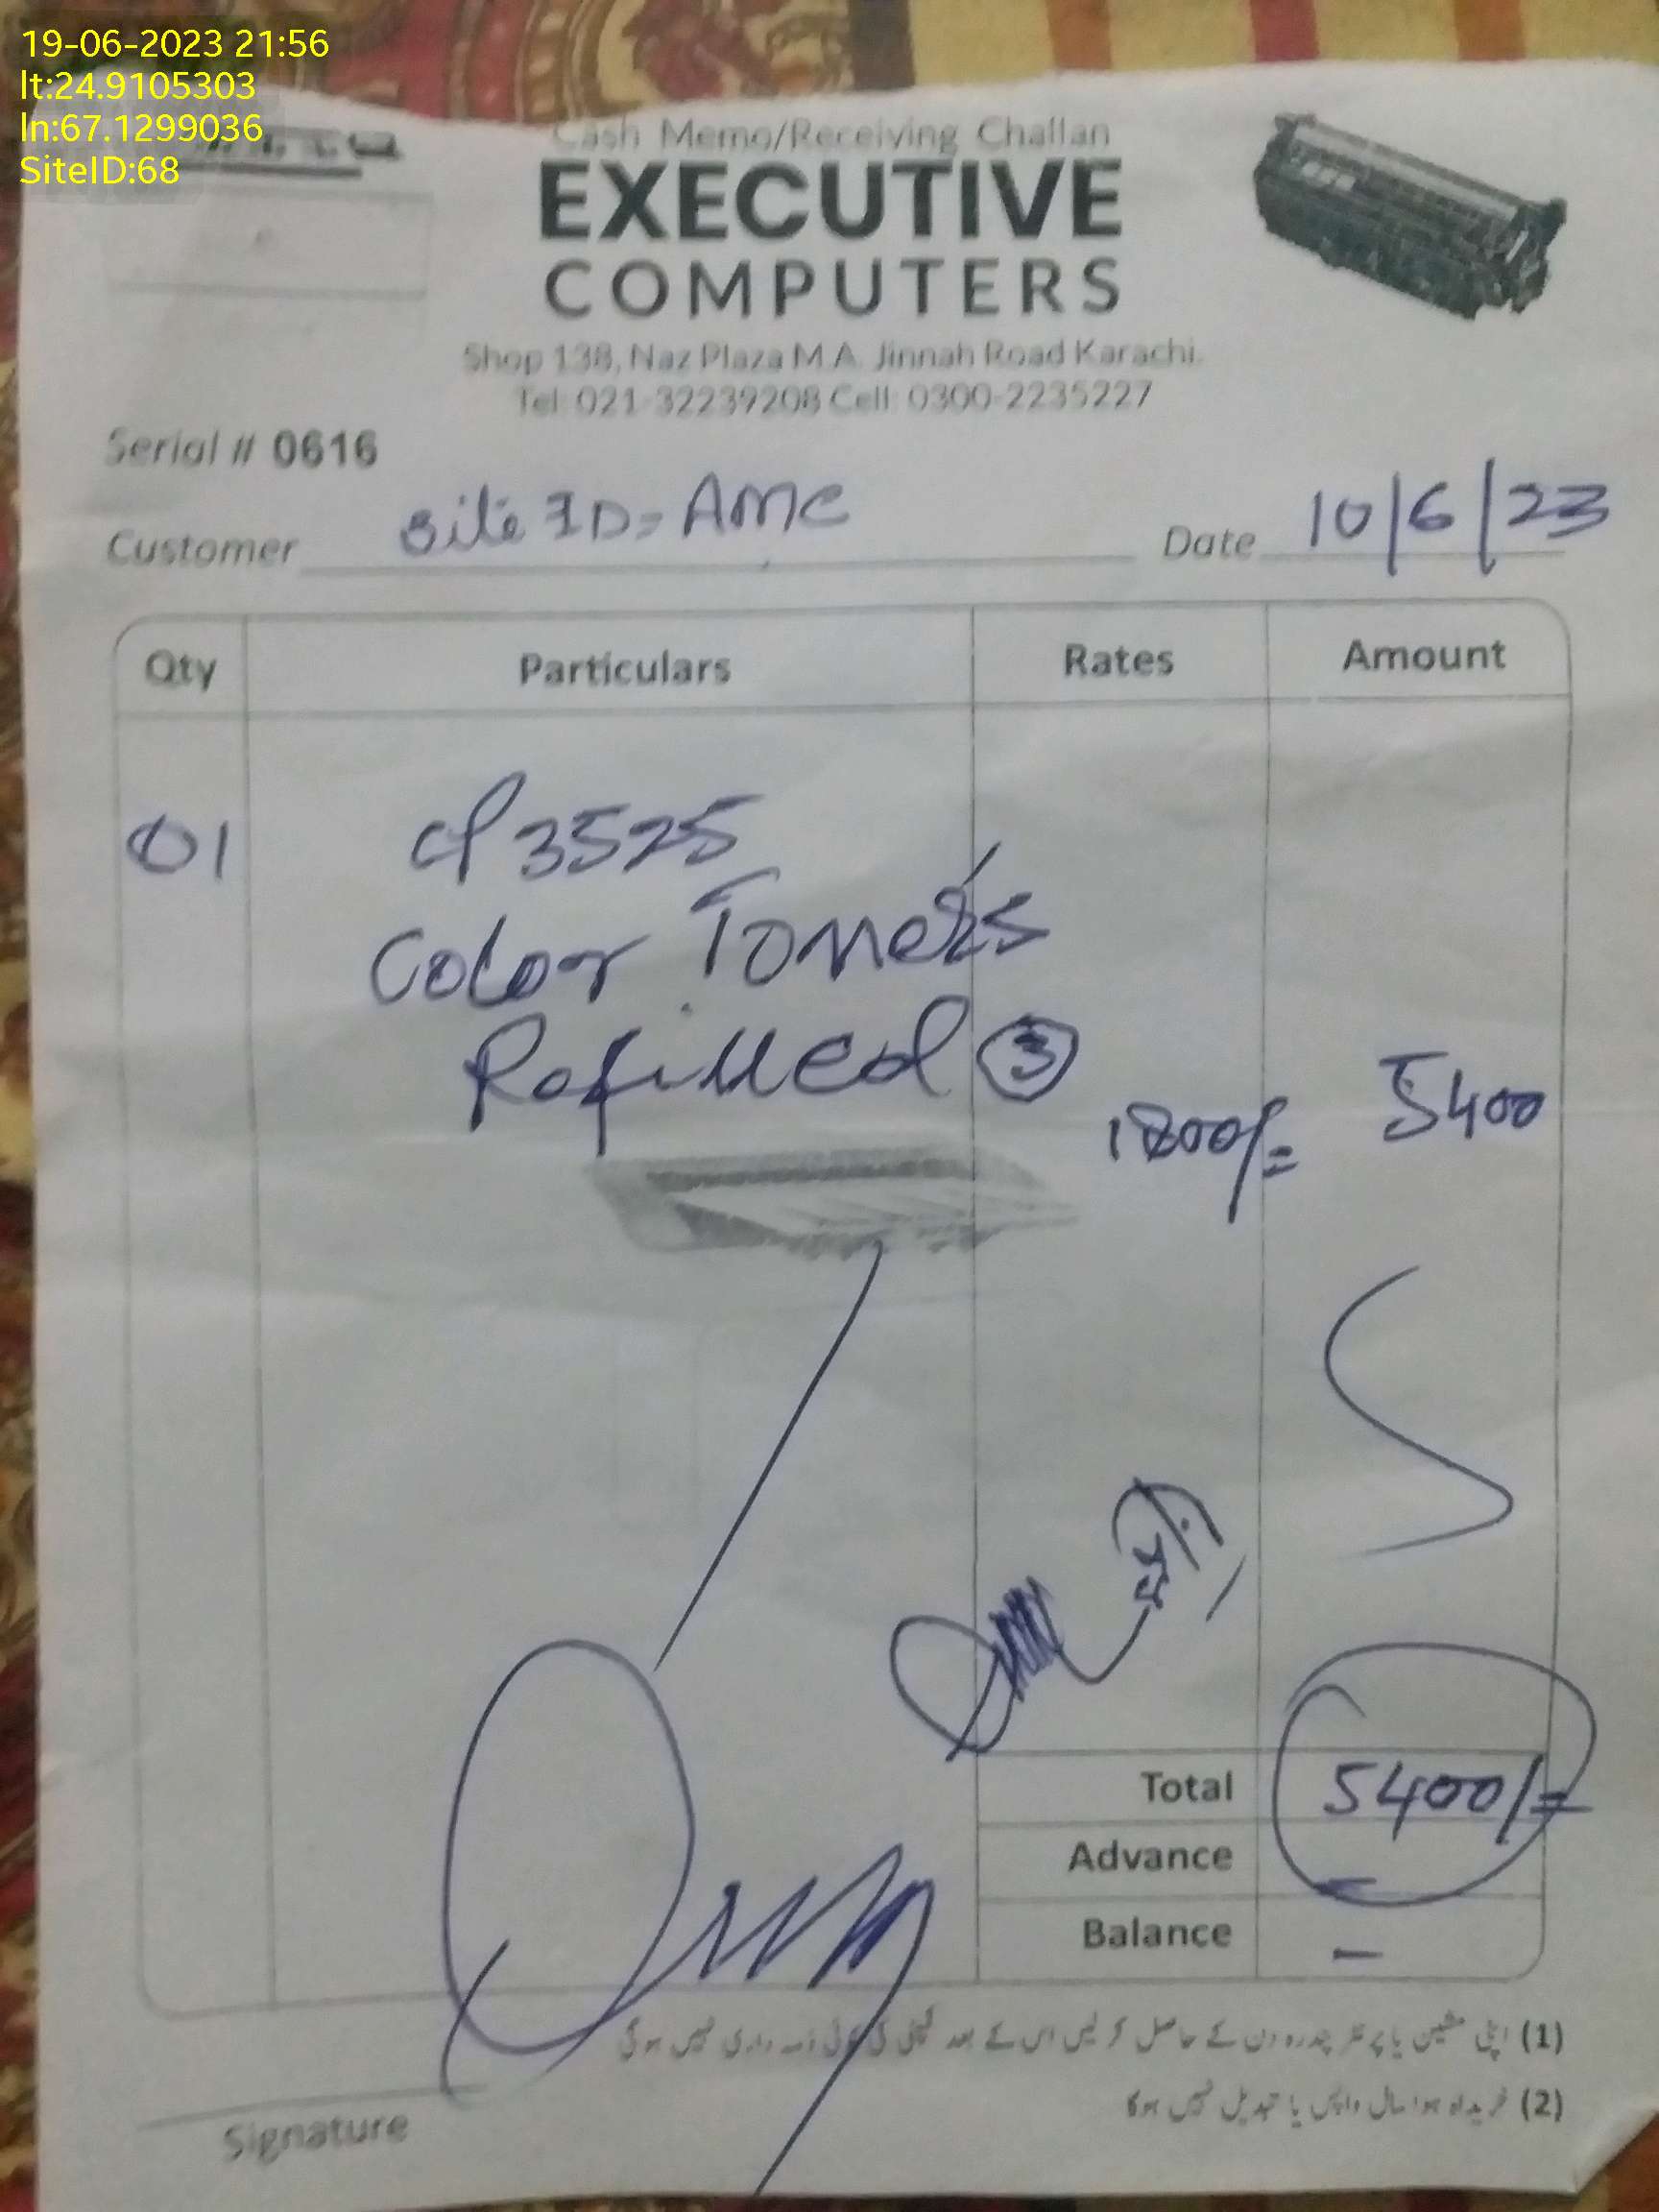 19-06-2023 21:56
lt:24.9105303
ln:67.1299036
SiteID:68
Cash Memo/Receiving Challan
EXECUTIVE
COMPUTERS
Shop 138, Naz Plaza M.A. Jinnah Road Karachi.
Tel: 021-32239208 Cell: 0300-2235227
Serial # 0616
Customer Site ID= AMC Date 10/6/23
Qty Particulars Rates Amount
01 CP3525
Color Toners
Refilled 3
1800/= 5400
Total 5400/=
Advance –
Balance –
(1) اپنی مشین یا پرنٹر پندرہ دن کے حاصل کر لیں اس کے بعد کمپنی کی کوئی ذمہ داری نہیں ہوگی
(2) خریدا ہوا مال واپس یا تبدیل نہیں ہوگا
Signature